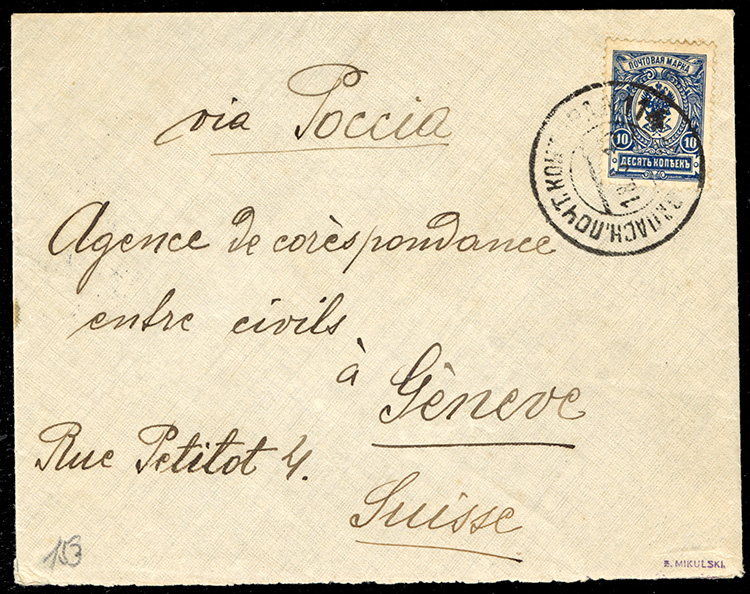 ПОЧТОВАЯ МАРКА
10 10
ДЕСЯТЬ КОПѢЕКЪ
ЗАПАСН. ПОЧТ. КОНТ.
via Россіа
Agence de corèspondance
entre civils
à
Gèneve
Rue Petitot 4.
Suisse
153
B. MIKULSKI.